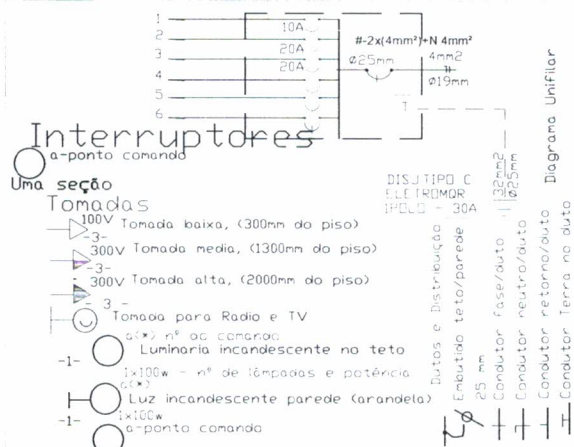 1
10A
2
20A
3
20A
4
5
6
#-2x(4mm²)+N 4mm²
Ø25mm
4mm2
Ø19mm
T
32mm2
Ø25mm
Diagrama Unifilar
Interruptores
a-ponto comando
Uma seção
DISJ TIPO C
- 30A
Tomadas
100V Tomada baixa, (300mm do piso)
-3-
300V Tomada media, (1300mm do piso)
-3-
300V Tomada alta, (2000mm do piso)
- 3 -
Tomada para Radio e TV
a(*) nº do comando
-1- Luminaria incandescente no teto
1x100w - nº de lâmpadas e potência
a(*)
Luz incandescente parede (arandela)
-1- 1x100w
a-ponto comando
Dutos e Distribuição
Embutido teto/parede
25 mm
Condutor fase/duto
Condutor neutro/duto
Condutor retorno/duto
Condutor Terra no duto